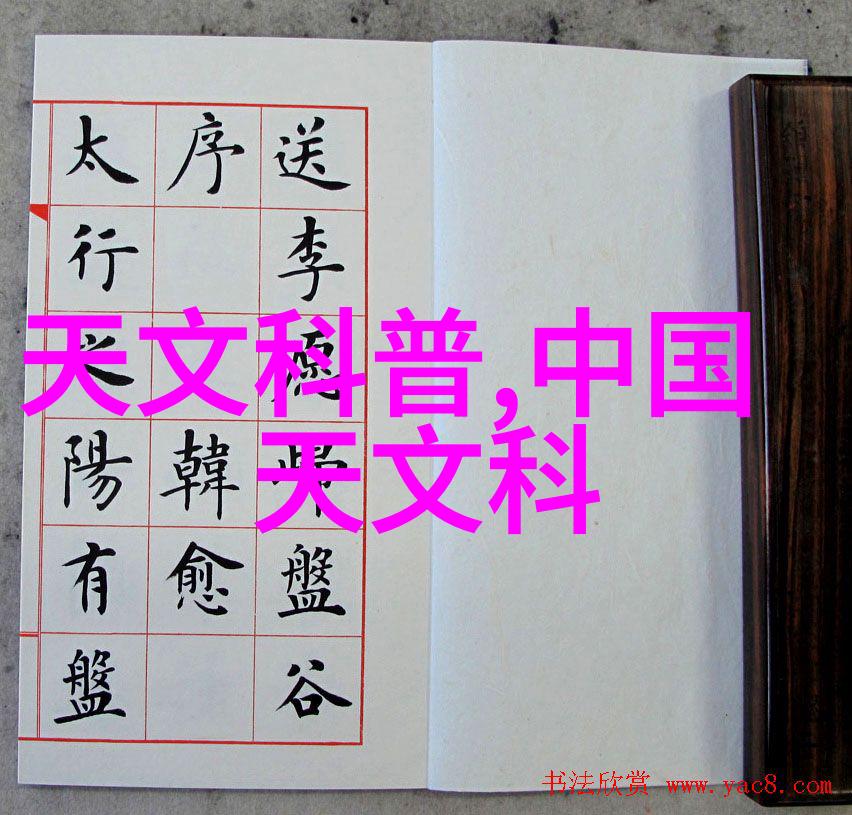 送李愿歸盤谷
序韓愈
太行之陽有盤
天文科普,中国
天文科
书法欣赏 www.yac8.com